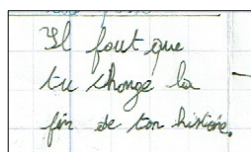 Il faut que
tu change la
fin de ton histoire.